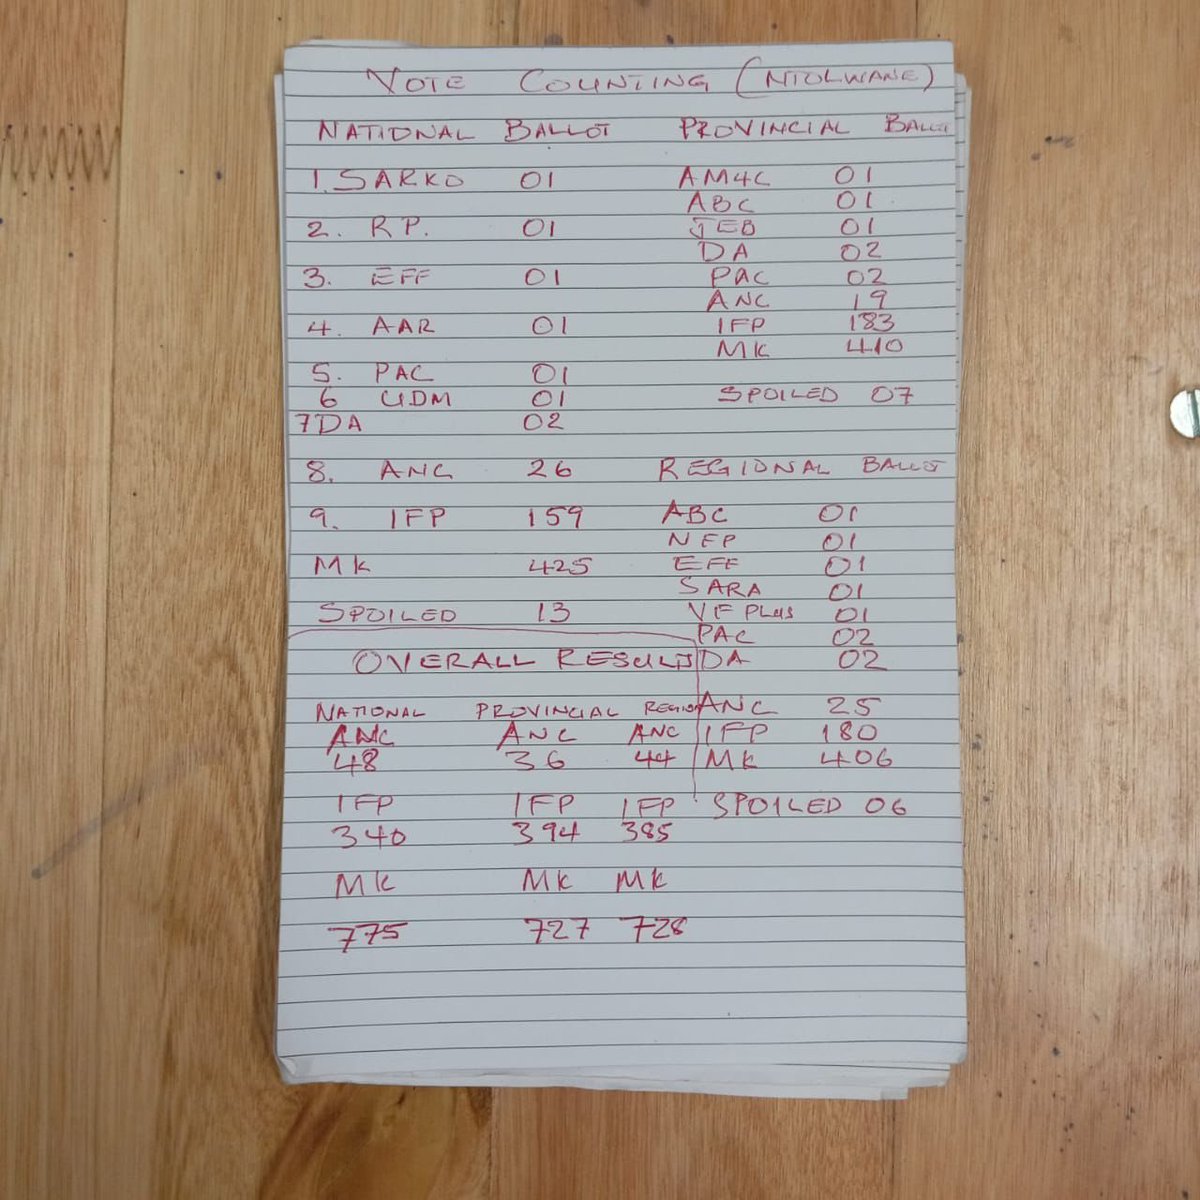 VOTE COUNTING (NTOLWANE)
NATIONAL BALLOT
1. SARKO 01
2. RP. 01
3. EFF 01
4. AAR 01
5. PAC 01
6 UDM 01
7 DA 02
8. ANC 26
9. IFP 159
MK 425
SPOILED 13
PROVINCIAL BALLOT
AM4C 01
ABC 01
JEB 01
DA 02
PAC 02
ANC 19
IFP 183
MK 410
SPOILED 07
REGIONAL BALLOT
ABC 01
NFP 01
EFF 01
SARA 01
VF PLUS 01
PAC 02
DA 02
ANC 25
IFP 180
MK 406
SPOILED 06
OVERALL RESULTS
NATIONAL PROVINCIAL REGION
ANC ANC ANC
48 36 44
IFP IFP IFP
340 394 385
MK MK MK
775 727 728